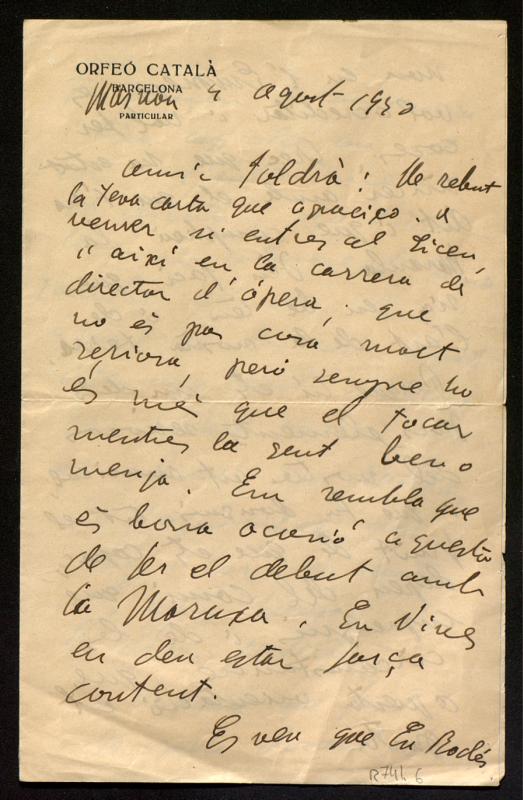 ORFEÓ CATALÀ
BARCELONA
PARTICULAR
Masnou 4 agost 19
Amic Toldrà: He rebut
la Teva carta que agraeixo. A
veure si entres al Liceu,
i així en la carrera de
director d'òpera, que
no és pas cosa molt
seriosa, però sempre ho
és més que el tocar
mentres la gent beu o
menja. Em sembla que
és bona ocasió aquesta
de fer el debut amb
la Maruxa. En Vives
en deu estar força
content.
Es veu que En Rodés
R 741. 6